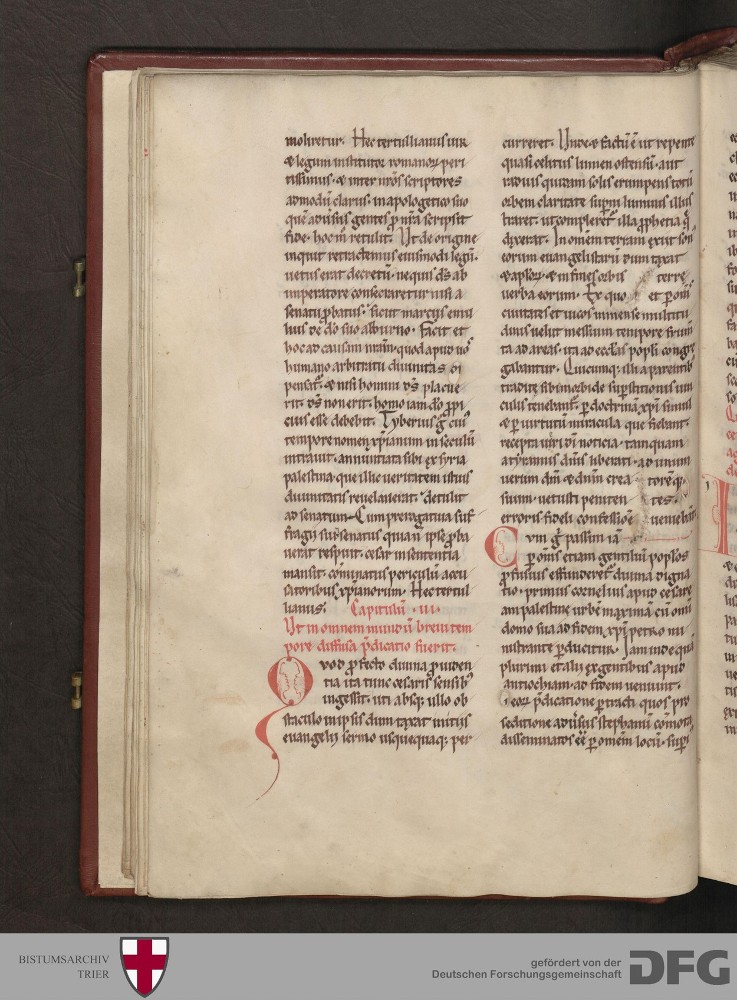 moliretur. Hec tertullianus uir
& legum institutor romanoꝝ peri
tissimus. & inter nr̄os scriptores
admodū clarus. in apologetico suo
quē aduersus gentes ꝓ nr̄a scripsit
fide. hoc m̄ retulit. Ut de origine
inquit retractemus eiusmodi legū.
uetus erat decretū. ne quis d̄s ab
imperatore consecraretur nisi a
senatu ꝓbatus. sicut marcus emi
lius de d̄o suo alburno. Facit et
hoc ad causam nr̄am. quod apud uo᷒
humano arbitratu diuinitas di
pensat᷑. & nisi homini d̄s placue
rit. d̄s non erit. homo iam d̄o ꝓpi
cius esse debebit. Tyberius g̊ cui᷒
tempore nomen xp̄ianum in seculū
intrauit. annuntiata sibi ex syria
palestina. que illic ueritatem istius
diuinitatis reuelauerat. detulit
ad senatum. Cum prerogatiua suf
fragii sui. senatus quia n̄ ipse ꝓba
uerat respuit. cesar in sententia
mansit. cōminatus periculū accu
satoribus xp̄ianorum. Hec tertul
lianus. Capitulū .III.
Ut in omnem mundū breui tem
pore diffusa p̄dicatio fuerit.
Quod ꝓfecto diuina ꝓuiden
tia ita tunc cesaris sensib᷒
ingessit. uti absq; ullo ob
staculo in ipsis dum taxat initiis
euangelii sermo usquequaq; per
curreret. Unde & factū ē ut repente
quasi celitus lumen ostensū. aut
radius quidam solis erumpens totū
orbem claritate sup̄ni luminis illus
traret. ut compleret᷑ illa ꝓphetia q̄
dixerat. In omēm terram exiit son᷒
eorum euangelistarū dum taxat
& aptoꝝ. & in fines orbis terre
uerba eorum. Ex quo et ꝑ om̄s
ciuitates et uicos inmense multitu
dinis uelut messium tempore frum̄
ta ad areas. ita ad ecctas popti congre
gabantur. Quicumq; illi a parentib᷒
tradite sibi morbide suꝑstitionis uin
culis tenebant᷑. ꝑ doctrinā xp̄i simul
& ꝑ uirtutū miracula que fiebant.
recepta ueri di noticia. tamquam
a tyrannis diris liberati. ad unum
uerum dm̄ & dnm̄ crea torē q;
suum. uetusti peniten tes
erroris. fideli confessiōe ueniebāt.
Cum g̊ passim iā
ꝑ om̄s etiam gentiliū poptos
ꝓfusius effunderet᷑ diuina digna
tio. primus cornelius apud cesare
am palestine urbē maximā cū omī
domo sua ad fidem xp̄i petro mi
nistrante ꝑducitur. Iam inde quā
plurimi et alii ex gentibus apud
antiochiam. ad fidem uenunt.
i eoꝝ p̄dicatione ꝑtracti quos pro
seditione aduersus stephanū cōmota.
disseminatos ēē ꝑ omēm locū. suꝑi
BISTUMSARCHIV
TRIER
gefördert von der
Deutschen Forschungsgemeinschaft
DFG